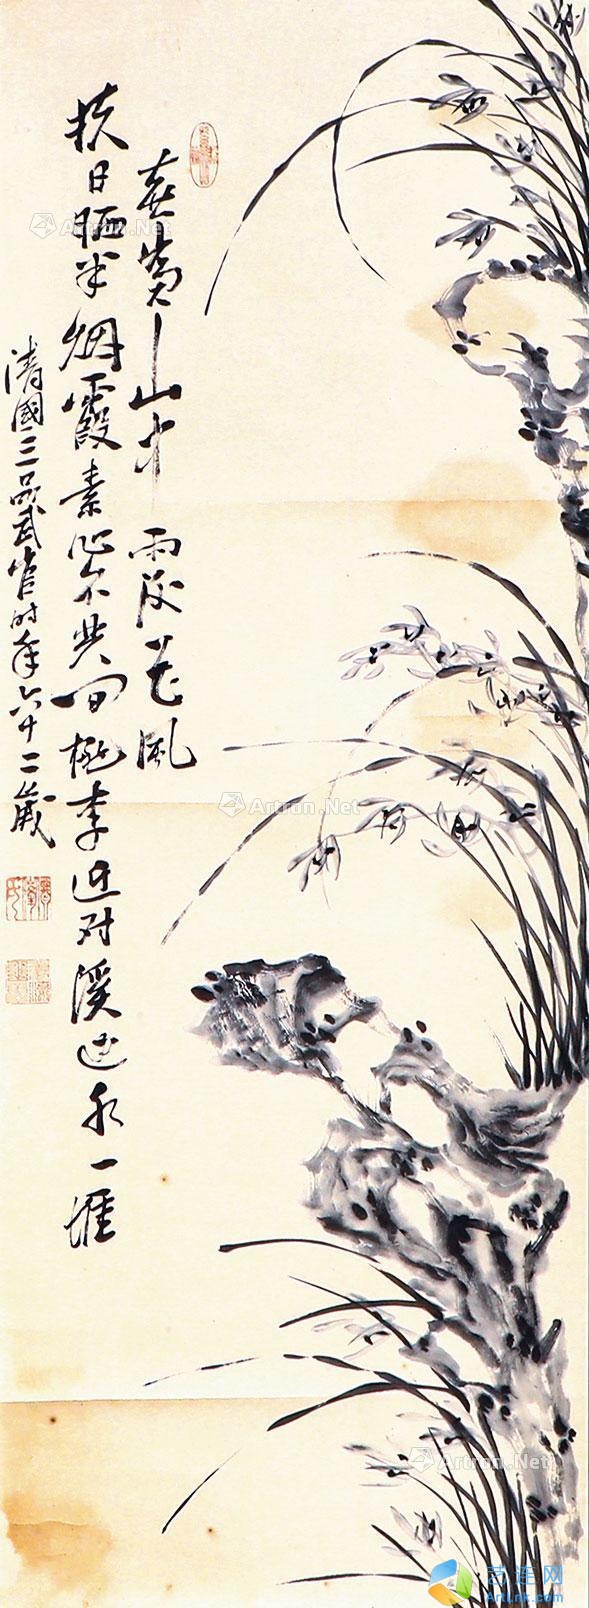 喜賞山中雨後花風
扶日晒半烟霞素心不共閒桃李近对溪边水一涯
清國三品武官时年六十二歲
Artron.Net
Artron.Net
Artron.Net
艺连网
Artlnk.com